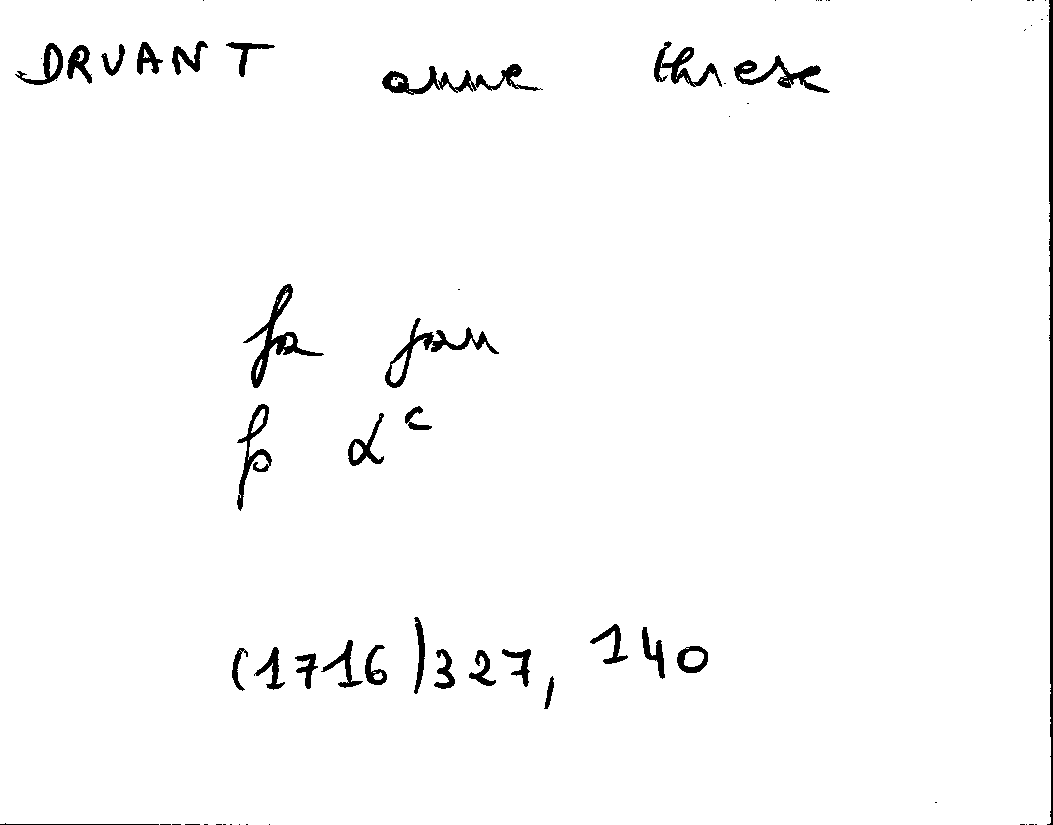 DRUANT anne threse
fa jan
p αᶜ
(1716)327, 140